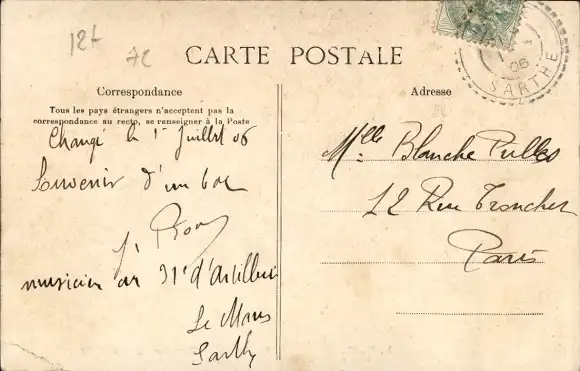 CARTE POSTALE
Correspondance
Tous les pays étrangers n'acceptent pas la
correspondance au recto, se renseigner à la Poste
Changé le 1er Juillet 06
Souvenir d'un
musicien au 31e d'artillerie
Le Mans
Sarthe
Adresse
Mlle Blanche
12 Rue Tronchet
Paris
06
SARTHE